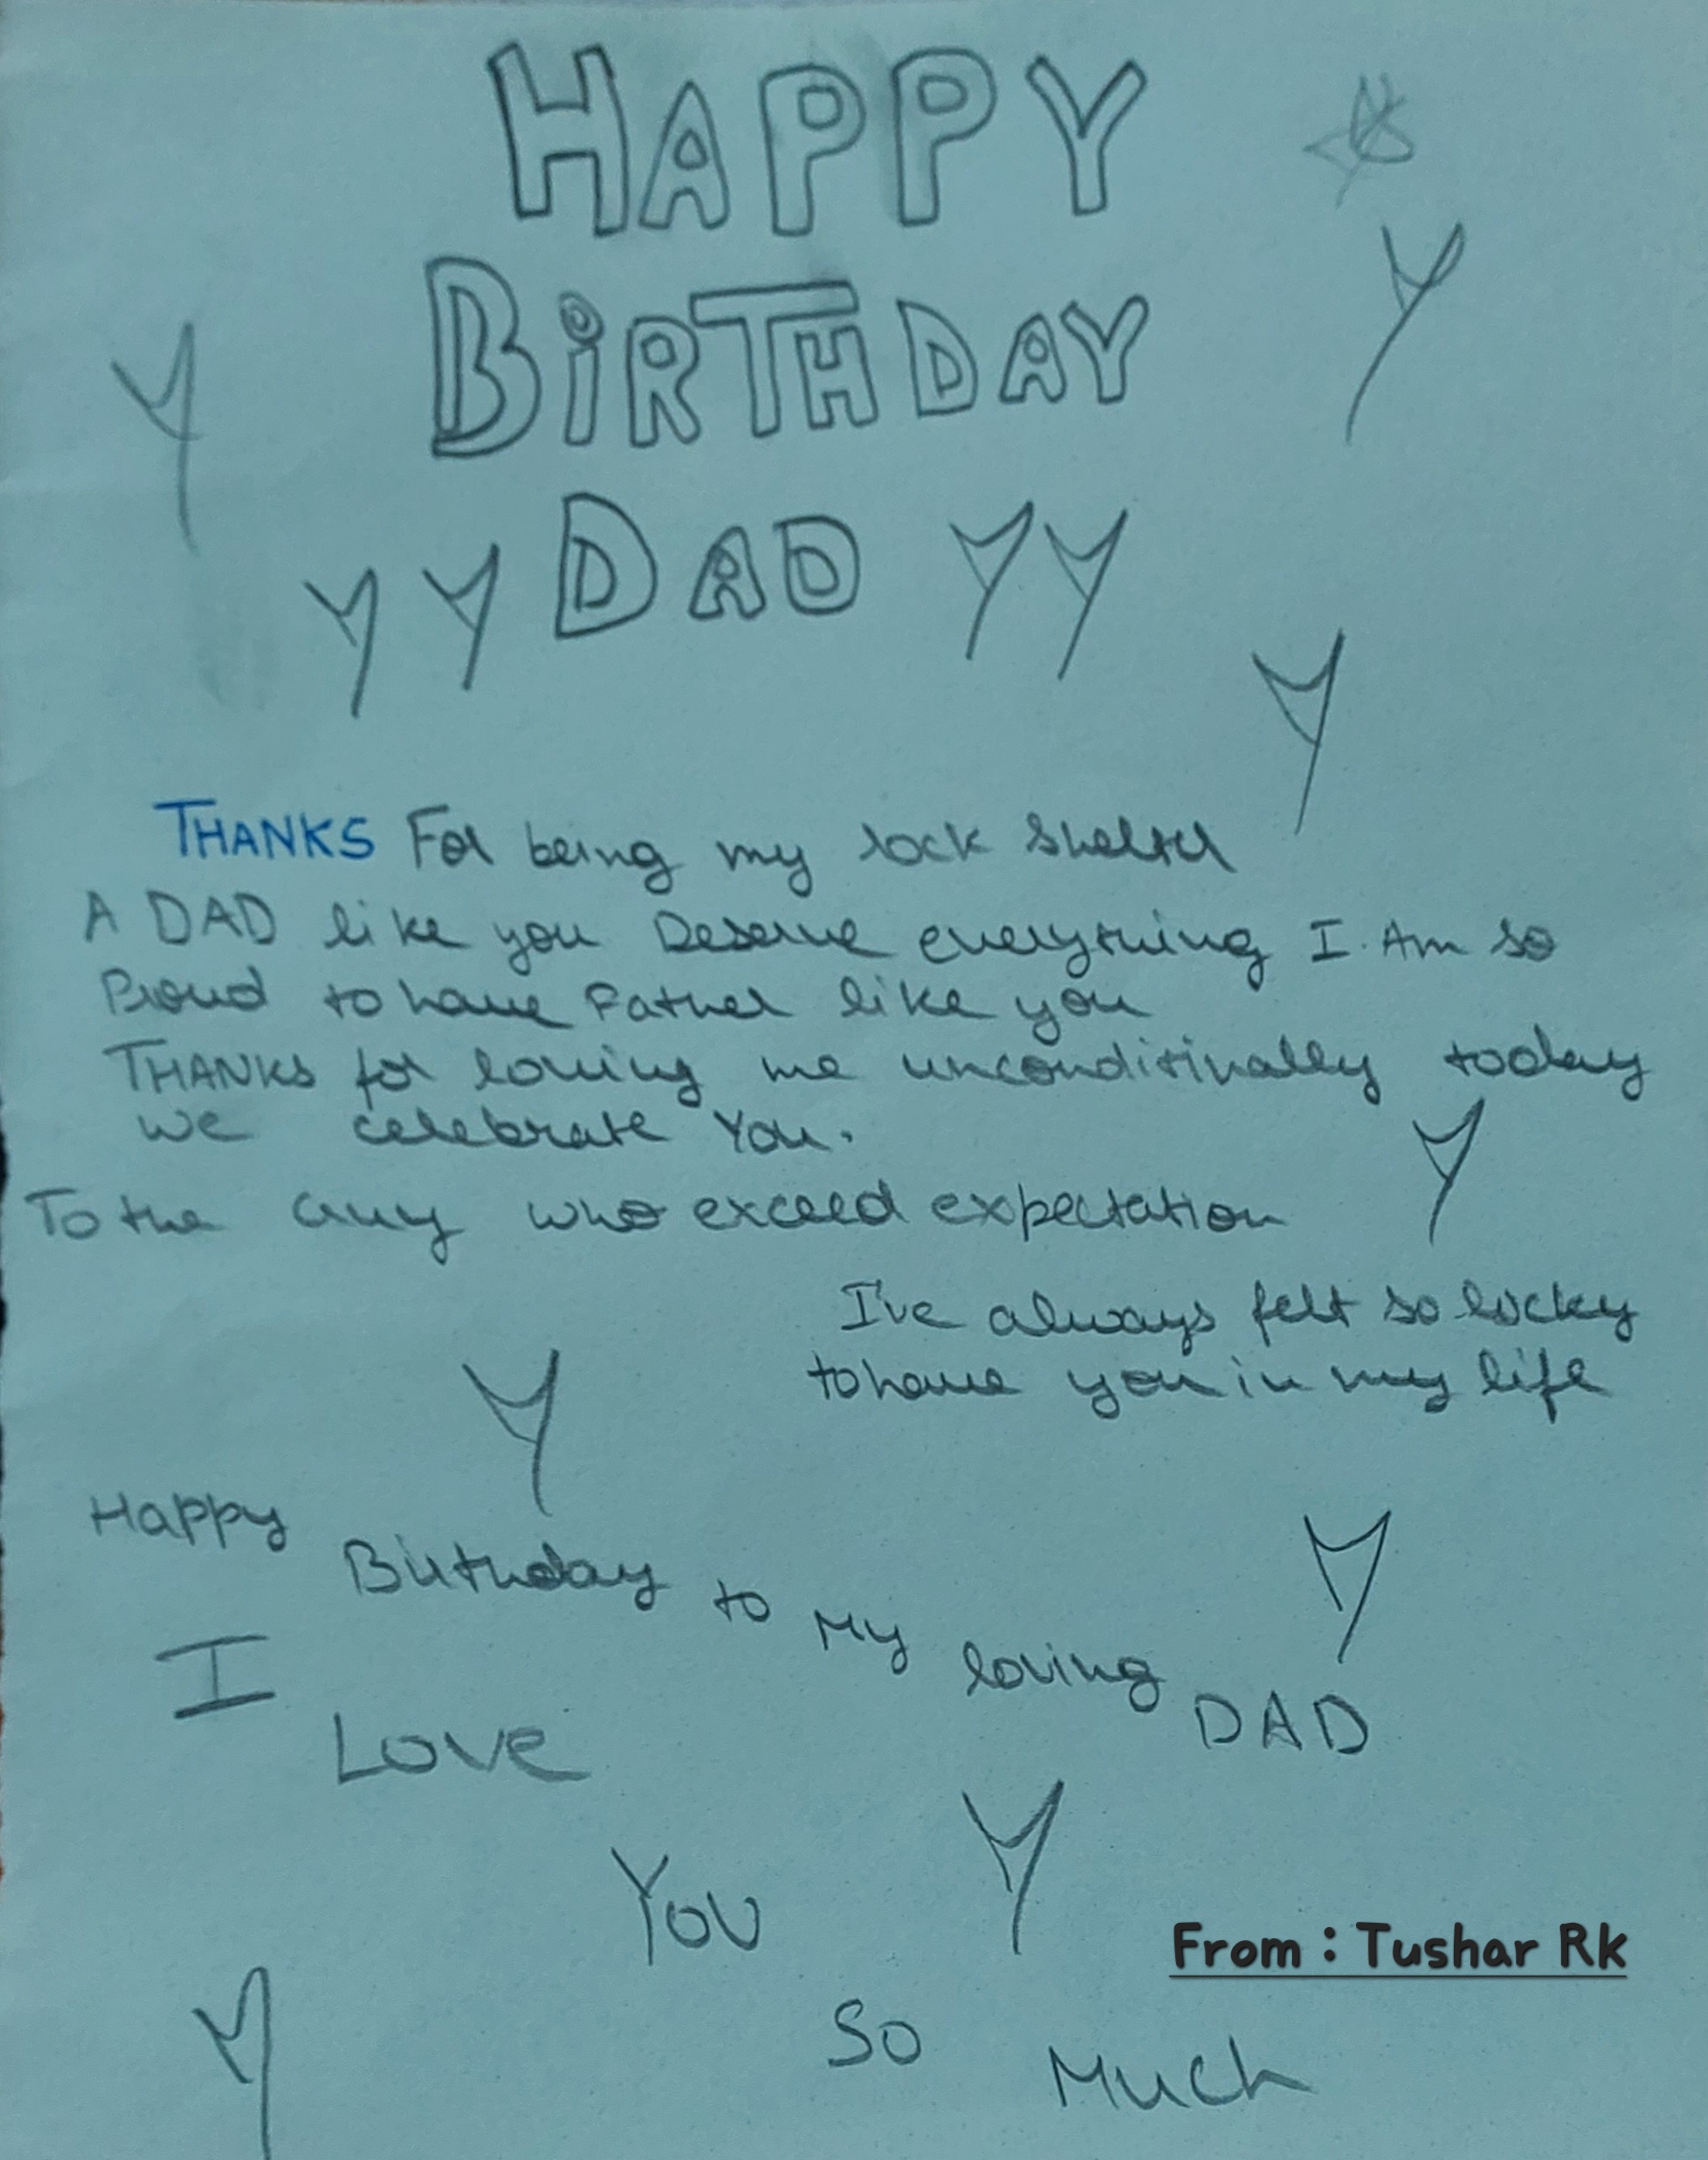 HAPPY
BiRTHDAY
DAD
THANKS For being my rock shelter
A DAD like you Deserve everything I Am so
Proud to have Father like you
THANKS for loving me unconditinally today
we celebrate You.
To the Guy who exceed expectation
I've always felt so lucky
to have you in my life
Happy Birthday to My loving DAD
I Love You So Much
From : Tushar Rk